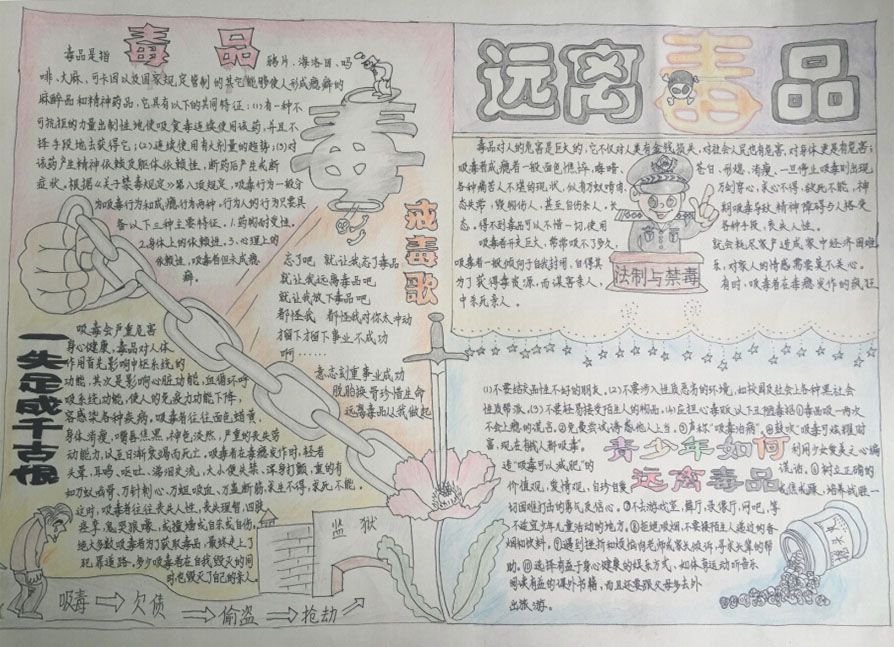 毒品
毒品是指
鸦片、海洛因、吗
啡、大麻、可卡因以及国家规定管制的其它能够使人形成瘾癖的
麻醉品和精神药品,它具有以下的共同特征:(1)有一种不
可抗拒的力量出制性地使吸食毒连续使用该药,并且不
择手段地去获得它;(2)连续使用有大剂量的趋势;(3)对
该药产生精神依赖及躯体依赖性,断药后产生戒断
症状。根据《关于禁毒规定》第八项规定,吸毒行为一般分
为吸毒行为和成瘾行为两种,行为人的行为只要具
备以下三种主要特征。1.药物耐受性。
2.身体上的依赖性。3.心理上的
依赖性,吸毒者但未成瘾
癖。
毒
戒毒歌
忘了吧 就让我忘了毒品
就让我远离毒品吧
就让我放下毒品吧
都怪我 都怪我对你太冲动
才留下才留下事业不成功
啊……
意志刻重事业成功
脱胎换骨珍惜生命
远离毒品从我做起
一失足成千古恨
吸毒会严重危害
身心健康,毒品对人体
作用首先影响中枢系统的
功能,其次是影响心脏功能,血循环呼
吸系统功能,使人的免疫力功能下降,
容易感染各种疾病。吸毒者往往面色蜡黄,
身体消瘦,嘴唇焦黑,神色淡然,严重的丧失劳
动能力,以至日渐衰竭而死亡。吸毒者在毒瘾发作时,轻者
头晕、耳鸣、呕吐、涕泪交流,大小便失禁、浑身打颤,重的有
如万蚁啃骨、万针刺心、万蛆吸血、万蛊断筋,求生不得,求死不能。
这时,吸毒者往往丧失人性,丧失理智,四肢
痉挛,鬼哭狼嚎,或撞墙或自杀或自伤。
绝大多数吸毒者为了获取毒品,最终走上了
犯罪道路。多少吸毒者在自我毁灭的同
时,也毁灭了自己的亲人。
监狱
吸毒 欠债 偷盗 抢劫
远离毒品
毒品对人的危害是巨大的,它不仅对人类有金钱损失,对社会人民也有危害;对身体更是有危害;
吸毒者成瘾者一般面色憔悴,瘫喑、苍白,形憔、消瘦,一旦停止吸毒则出现
各种痛苦人不堪的现状,似有万蚁啃骨、万剑穿心,求心不得、欲死不能,神
态失常,毁物伤人,甚至自伤杀人。长期吸毒导致精神障碍与人格变
态。得不到毒品可以不惜一切,使用各种手段,丧失人性。
吸毒者开支巨大,常常吸不了多久,就会耗尽家产造成家中经济困难
吸毒者一般倾向于自我封闭,自得其乐,对家人的情感需要莫不关心。
为了获得毒资源,而谋害亲人,有时,吸毒者在毒瘾发作的疯狂
中杀死亲人。
法制与禁毒
青少年如何
远离毒品
(1)不要结交品性不好的朋友。(2)不要涉入性质恶劣的环境,如校园及社会上各种黑社会
性质帮派。(3)不要轻易接受陌生人的物品。(4)应担心毒贩以下五种骗毒招①毒品吸一两次
不会上瘾的谎言。②免费尝试诱惑他人上当。③声称“吸毒治病”。④鼓吹“吸毒可炫耀财
富,现在有钱人都吸毒”。利用少女爱美之心编
造“吸毒可以减肥”的谎治。⑥树立正确的
价值观,爱情观,自珍自爱
切困难打击的勇气及信心。⑦不去游戏室,舞厅、录像厅、网吧,等
不适宜少年儿童活动的地方。⑧拒绝吸烟、不要接陌生人递过的香
烟和饮料。⑨遇到挫折和烦恼向老师或家长倾诉,寻求大算的帮
助。⑩选择有益于身心健康的娱乐方式,如体育运动听音乐
阅读有益的课外书籍,而且还要跟父母多去外
出旅游。